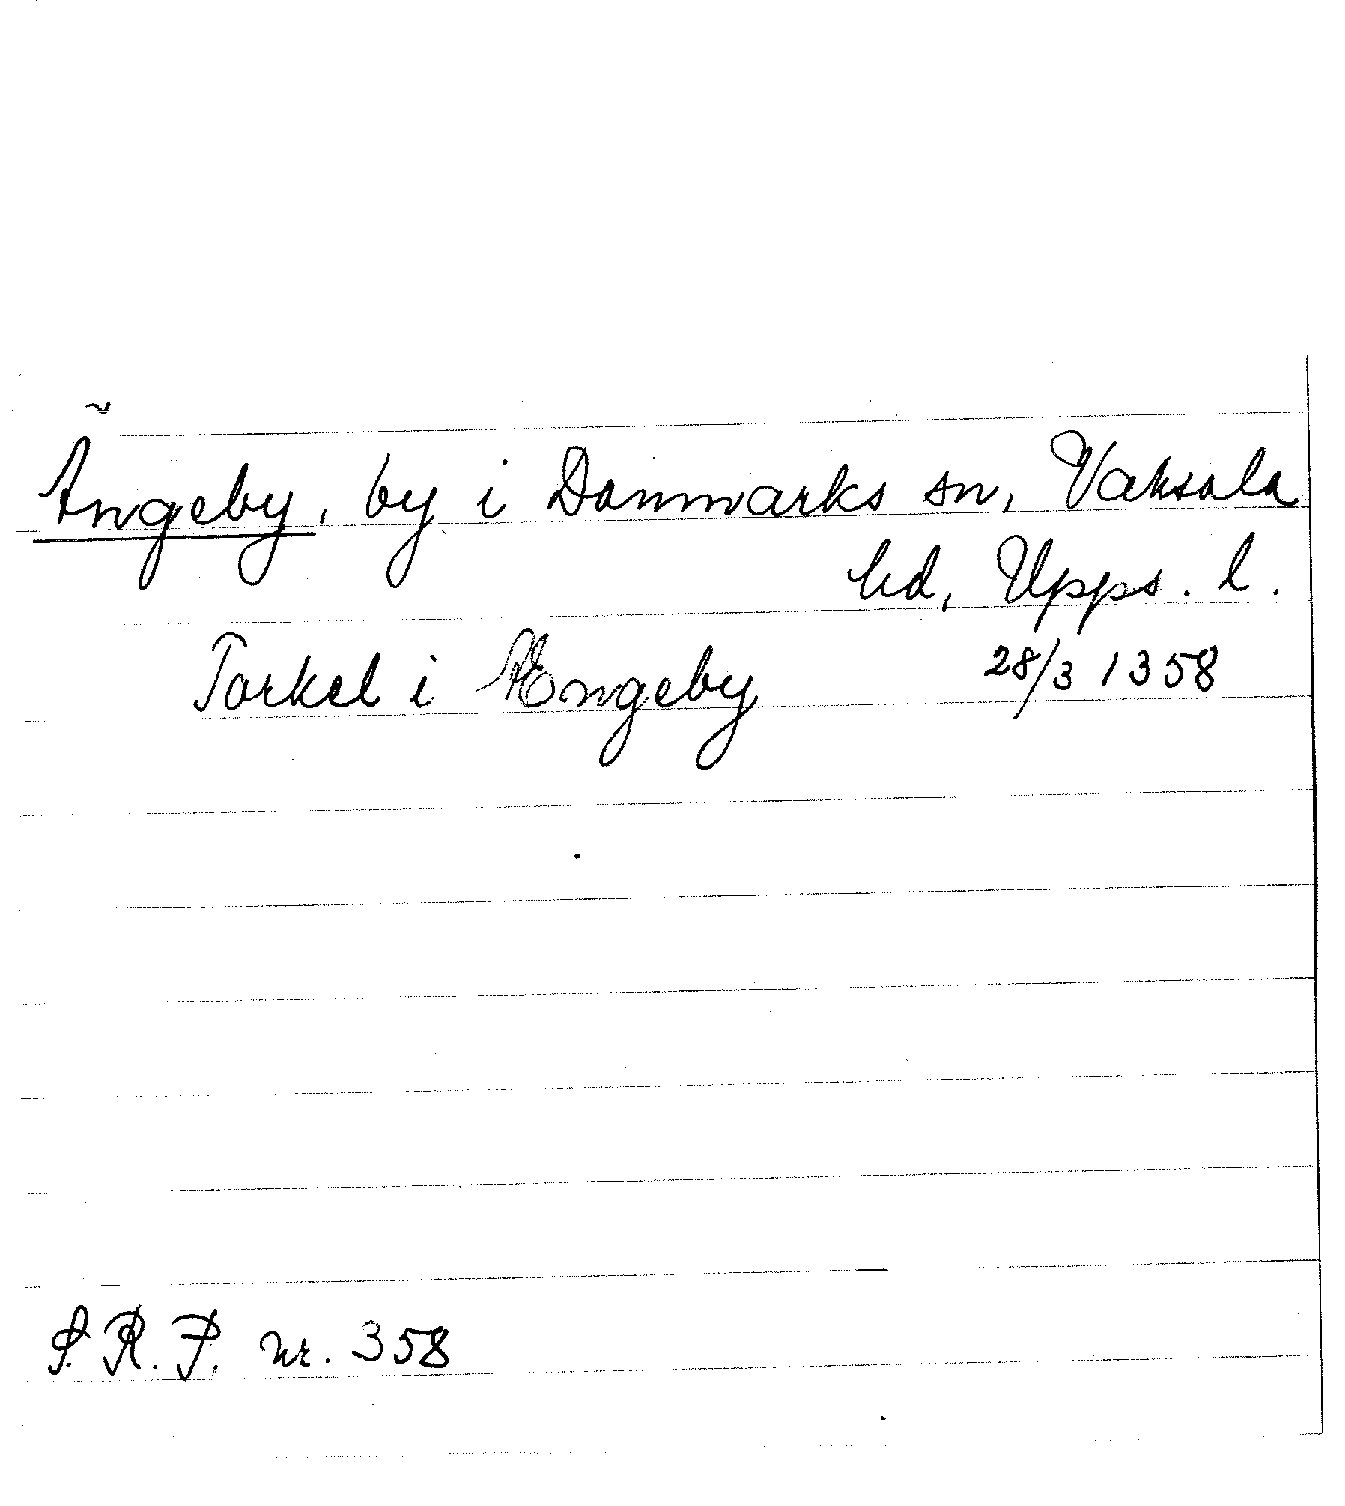 Ängeby, by i Danmarks sn, Vaksala
hd, Upps. l.
Torkel i Ængeby 28/3 1358
S.R.P. nr. 358